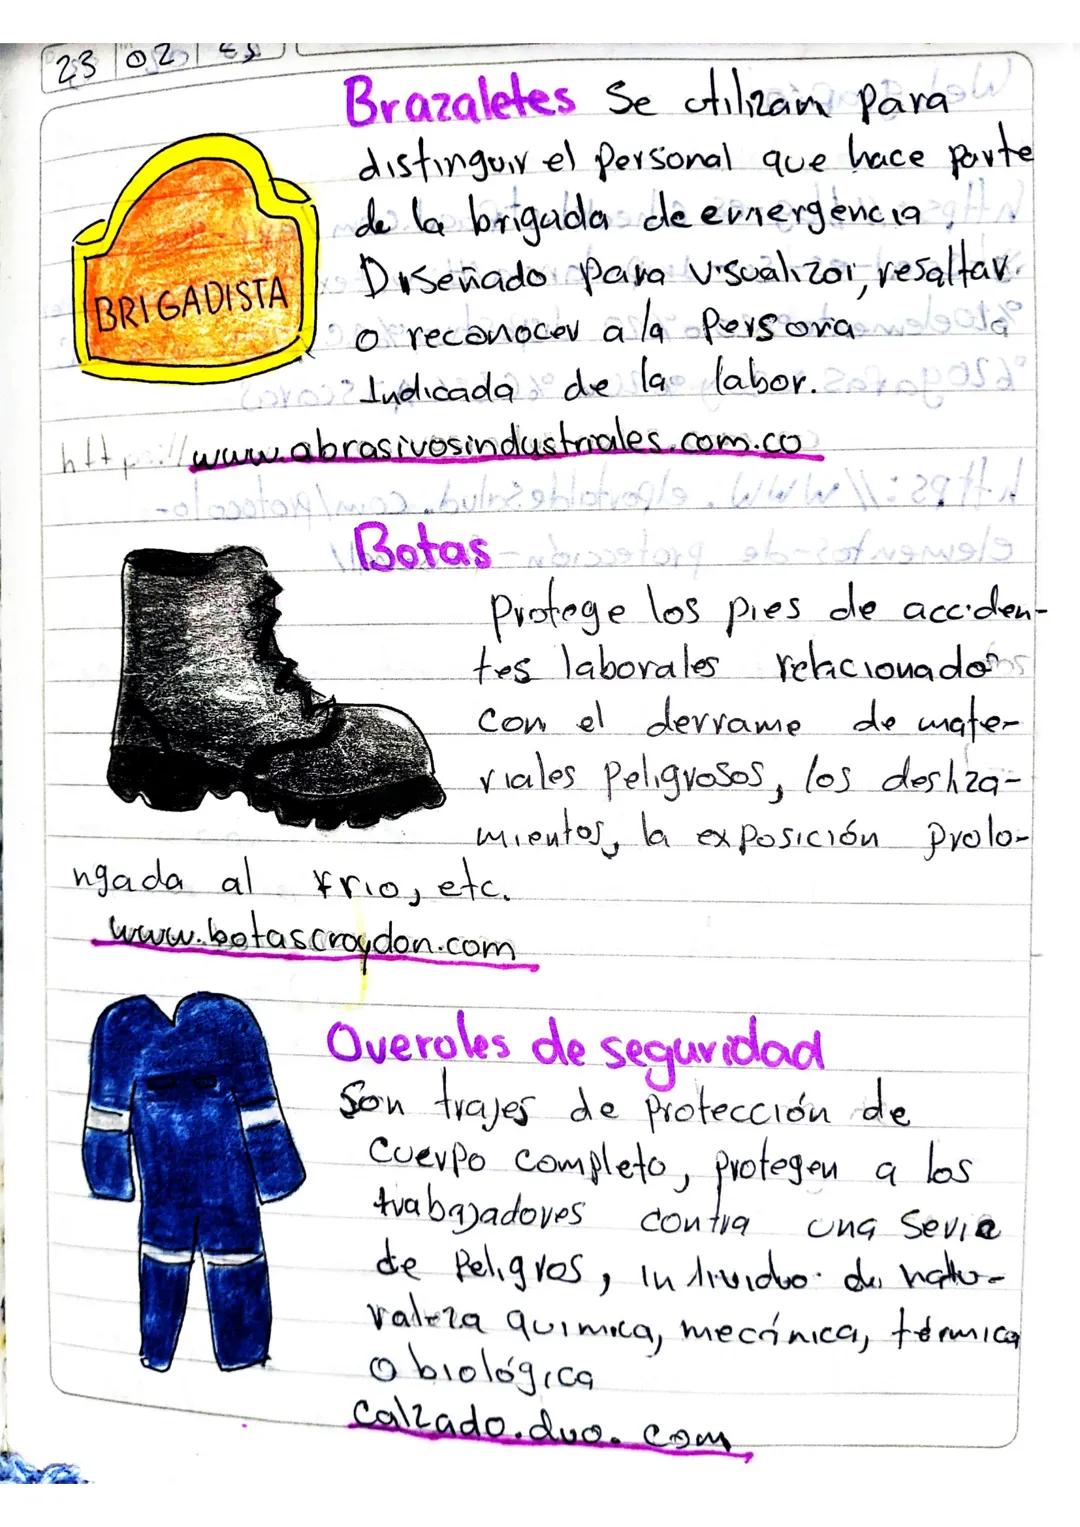 23 02 23
Brazaletes Se utilizan para
distinguir el personal que hace parte
de la brigada de emergencia
Diseñado para visualizar, resaltar
o reconocer a la persona
Indicada de la labor.
BRIGADISTA
http://www.abrasivosindustriales.com.co
Botas
Protege los pies de acciden-
tes laborales relacionados
con el derrame de mate-
riales peligrosos, los desliza-
mientos, la exposición prolo-
ngada al frio, etc.
www.botascroydon.com
Overoles de seguridad
Son trajes de protección de
cuerpo completo, protegen a los
trabajadores contra una serie
de peligros, individuo de natu-
raleza quimica, mecánica, térmica
o biológica
calzado.duo.com